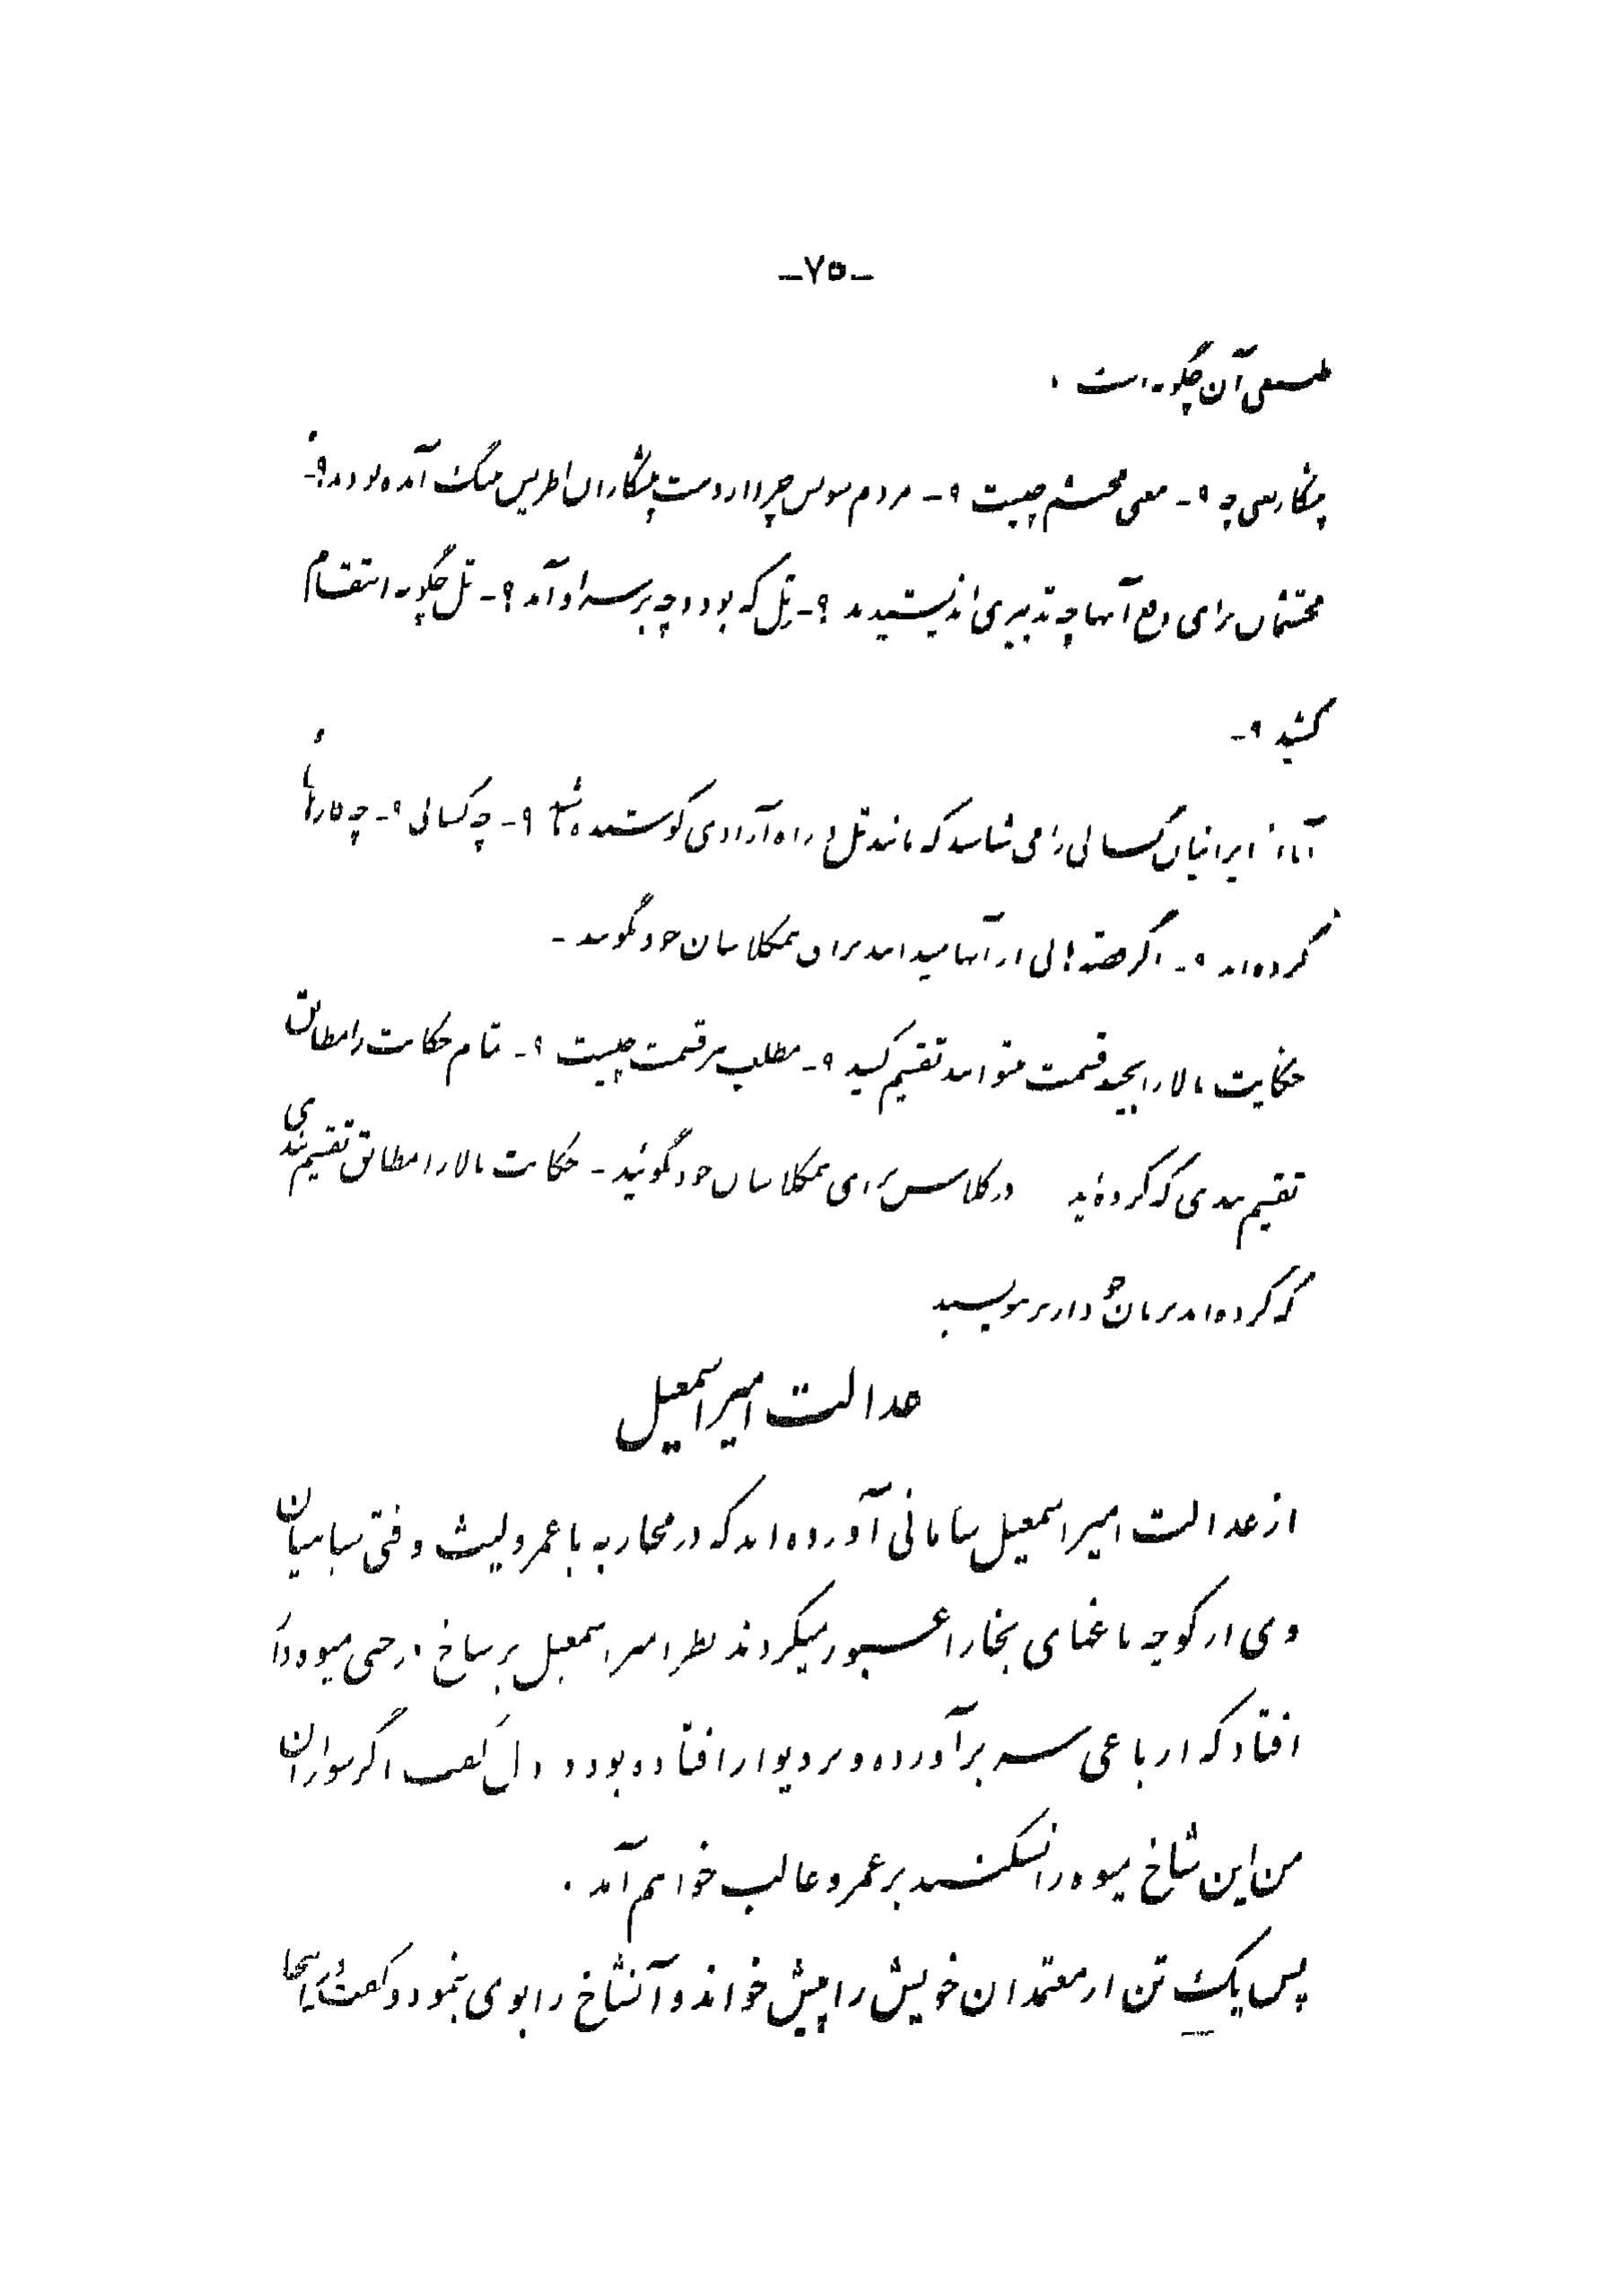 -۷۵-
طبیعی آن چگونه است .
پیشکار یعنی چه ؟- معنی محتشم چیست ؟- مردم سویس چرا از دست پیشکاران اطریش بتنگ آمده بودند ؟-
محتشمان برای دفع آنها چه تدبیری اندیشیدند ؟- تل که بود و چه بر سر او آمد ؟- تل چگونه انتقام
کشید ؟-
آیا از ایرانیان کسانی را می شناسید که مانند تل در راه آزادی کوشیده باشند ؟- چه کسانی ؟- چه کارها
کرده اند ؟- اگر قصه هائی از آنها میدانید برای همکلاسان خود بگوئید -
حکایت بالا را بچند قسمت میتوانید تقسیم کنید ؟- مطلب هر قسمت چیست ؟- تمام حکایت را مطابق
تقسیم بندی که کرده اید در کلاس برای همکلاسان خود بگوئید - حکایت بالا را مطابق تقسیم بندی
که کرده اند بزبان خود از بر بنویسید
عدالت امیر اسمعیل
از عدالت امیر اسمعیل سامانی آورده اند که در محاربه با عمرو لیث وقتی سپاهیان
وی از کوچه باغهای بخارا عبور میکردند نظر امیر اسمعیل بر شاخ درختی میوه دار
افتاد که از باغی سر برآورده و بر دیوار افتاده بود در دل گفت اگر سواران
من این شاخ میوه را نشکنند بر عمرو غالب خواهم آمد .
پس یک تن از معتمدان خویش را پیش خواند و آنشاخ را بوی بنمود و گفت اینجا